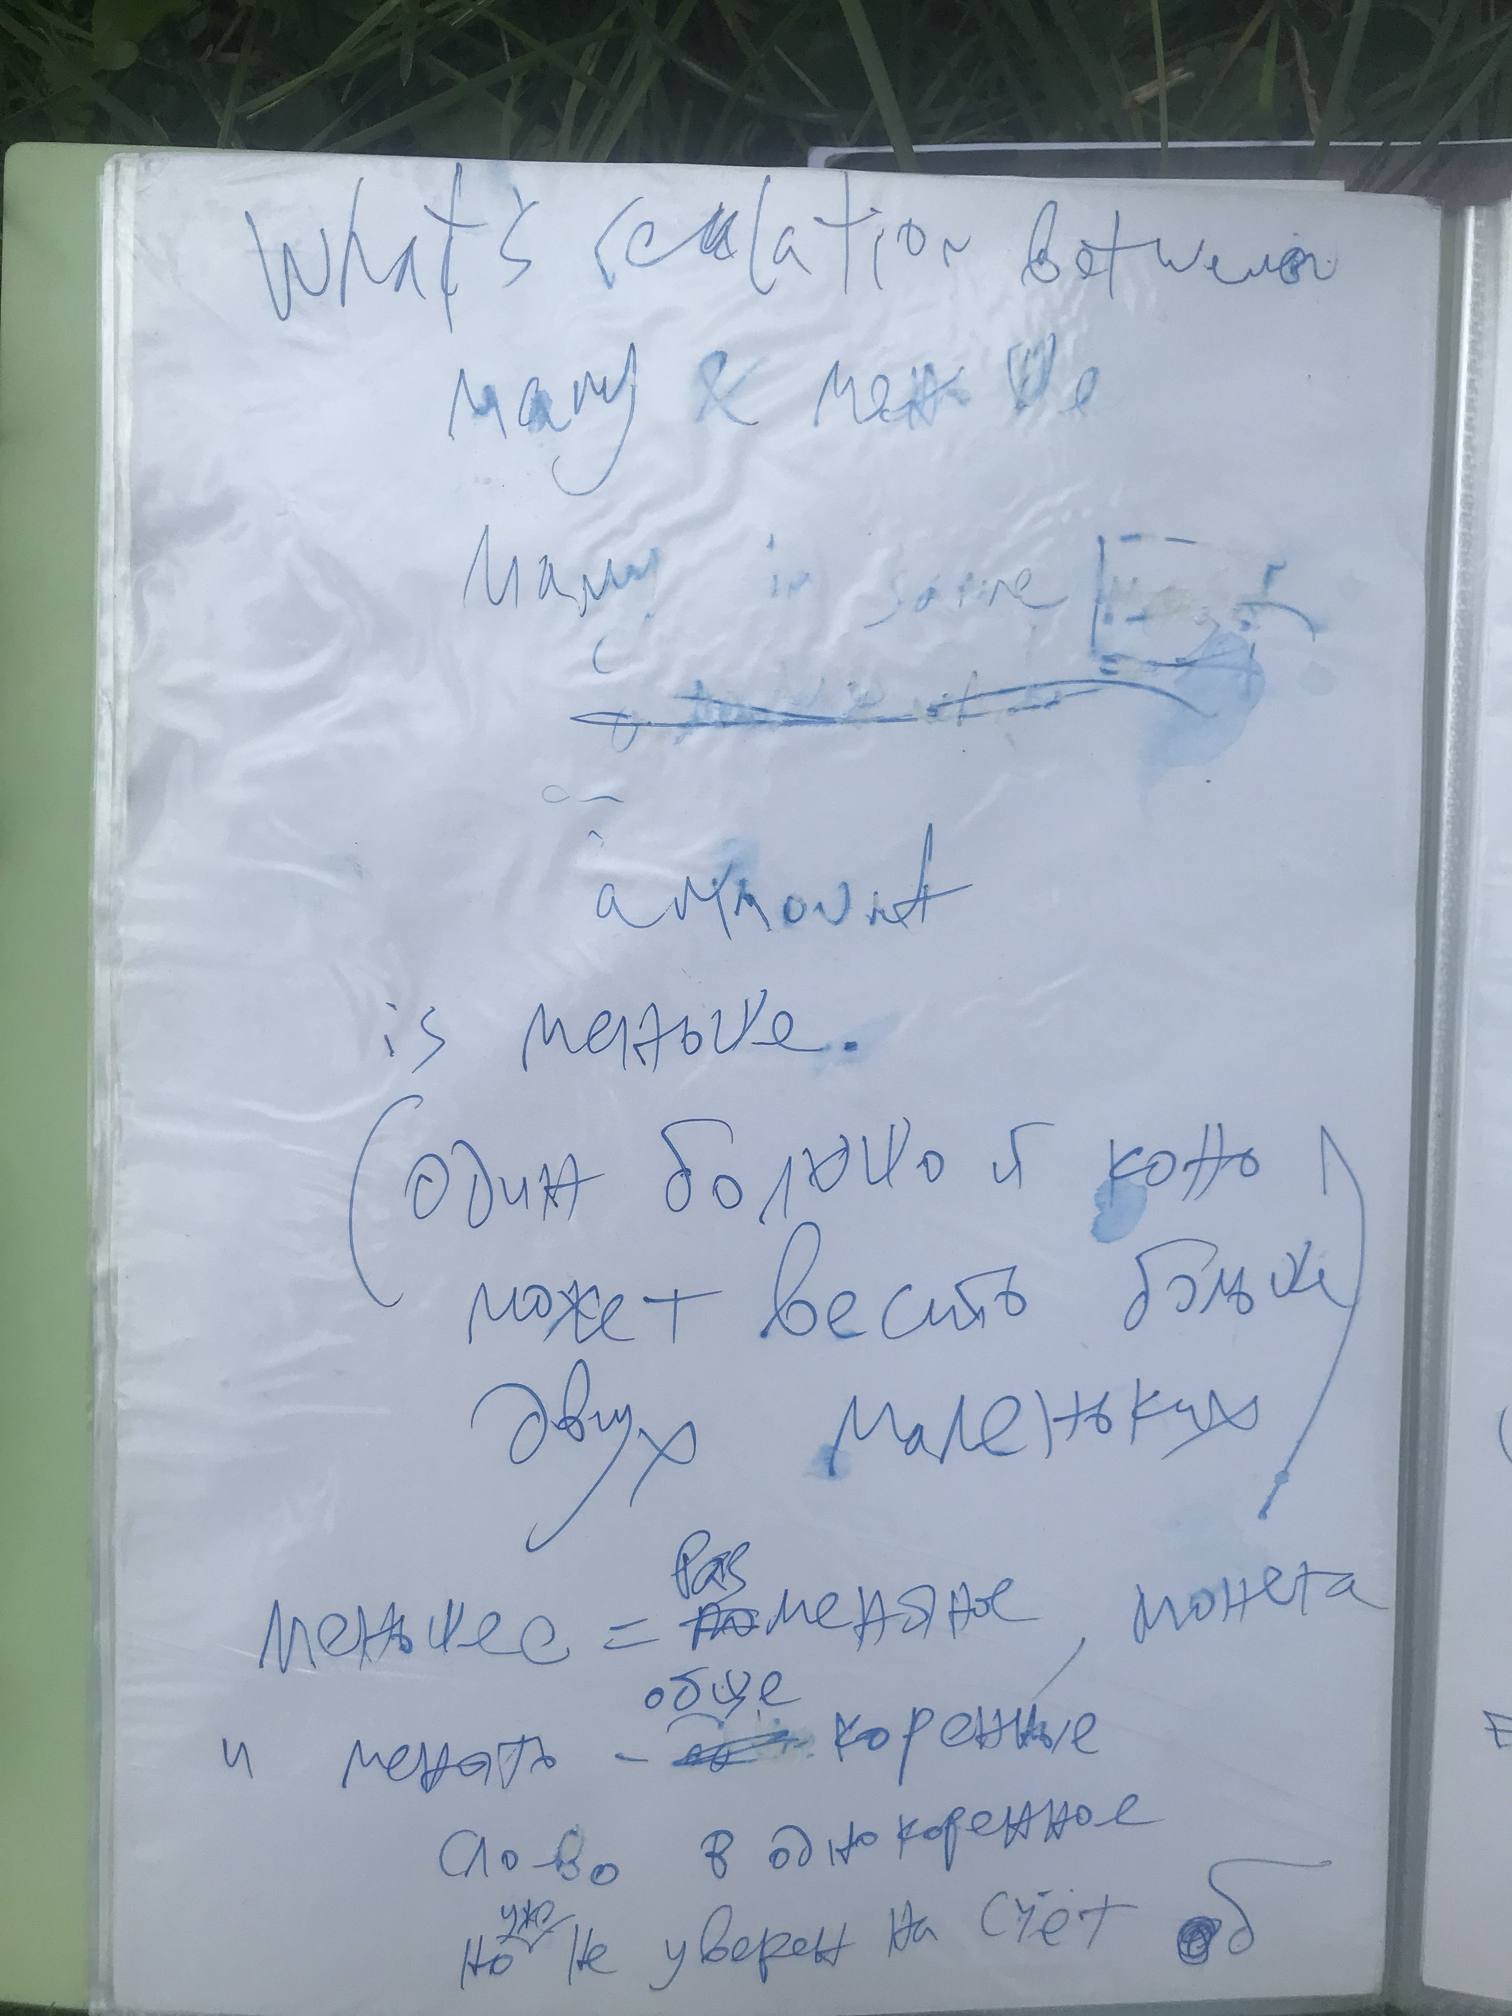 What's relation between
many & меньше
many in same
amount
is меньше.
(один большой конь
может весить больше
двух маленьких)
меньшее = разменяное, монета
и менять - общекоренные
слово в однокоренное
но уже не уверен на счёт об